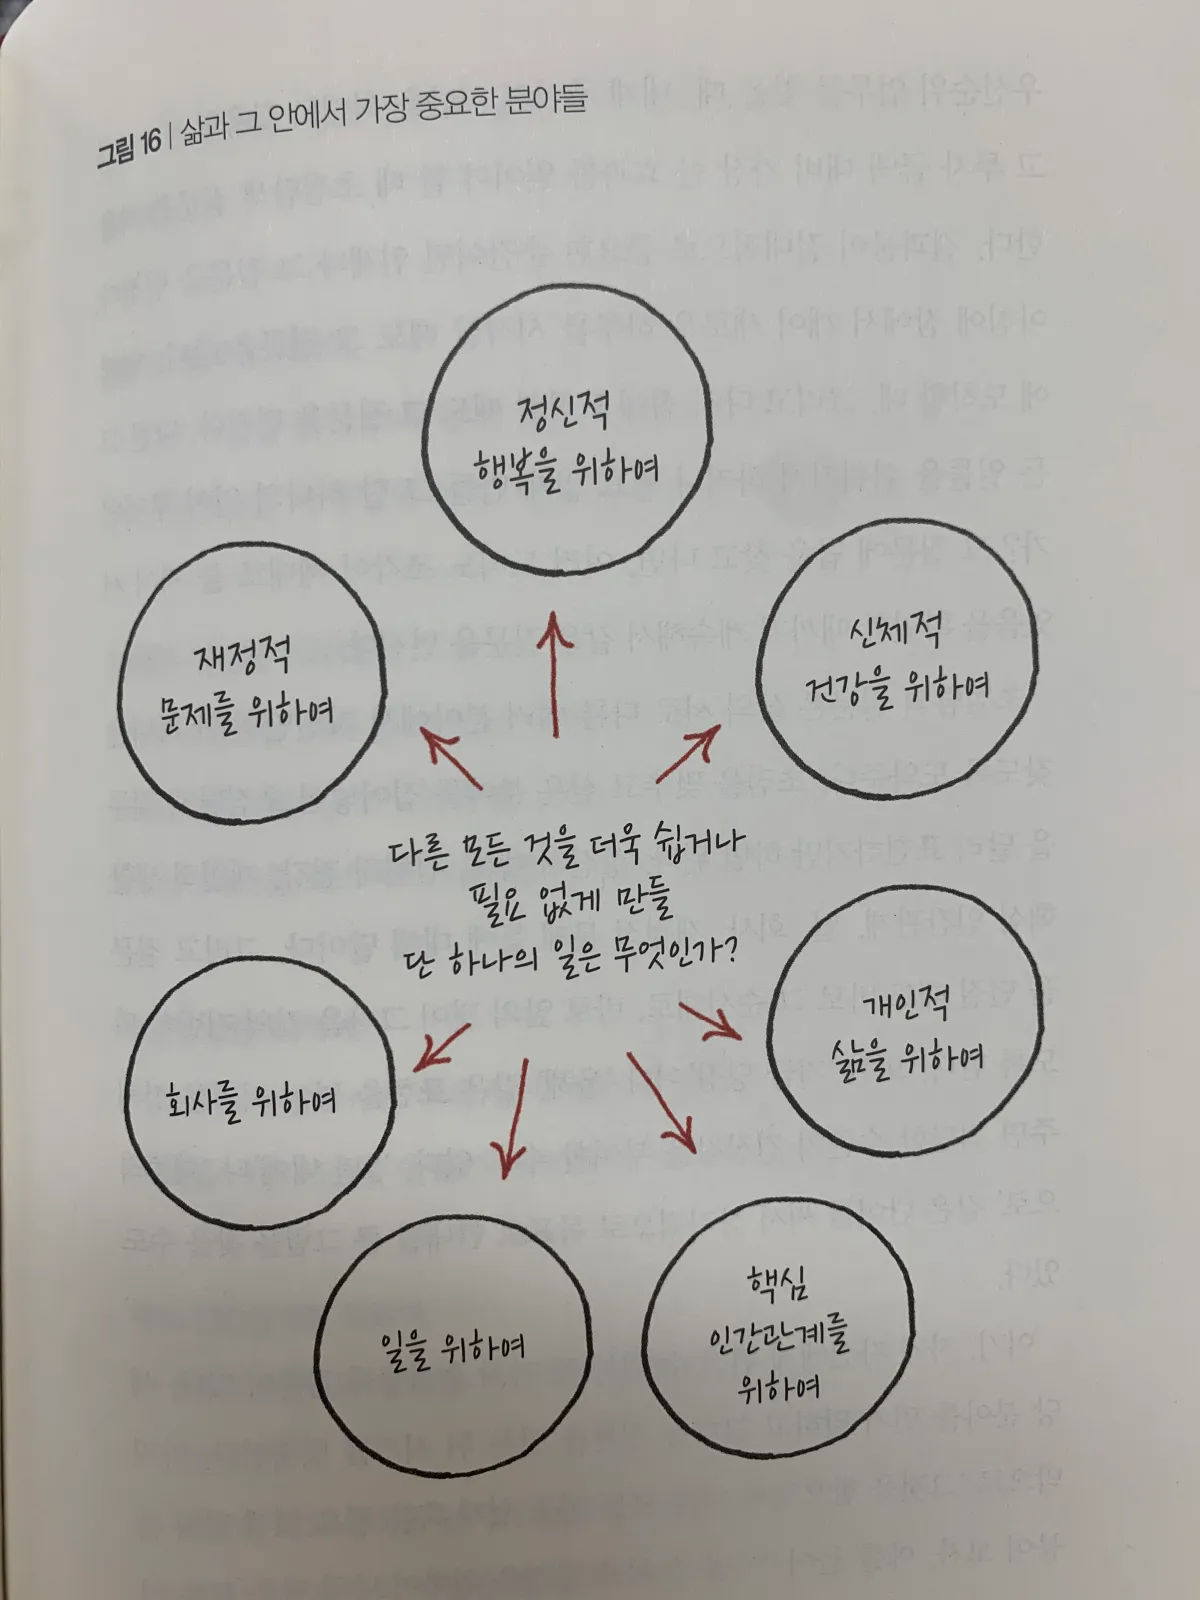 그림 16 | 삶과 그 안에서 가장 중요한 분야들
정신적
행복을 위하여
신체적
건강을 위하여
재정적
문제를 위하여
다른 모든 것을 더욱 쉽거나
필요 없게 만들
단 하나의 일은 무엇인가?
개인적
삶을 위하여
회사를 위하여
핵심
인간관계를
위하여
일을 위하여